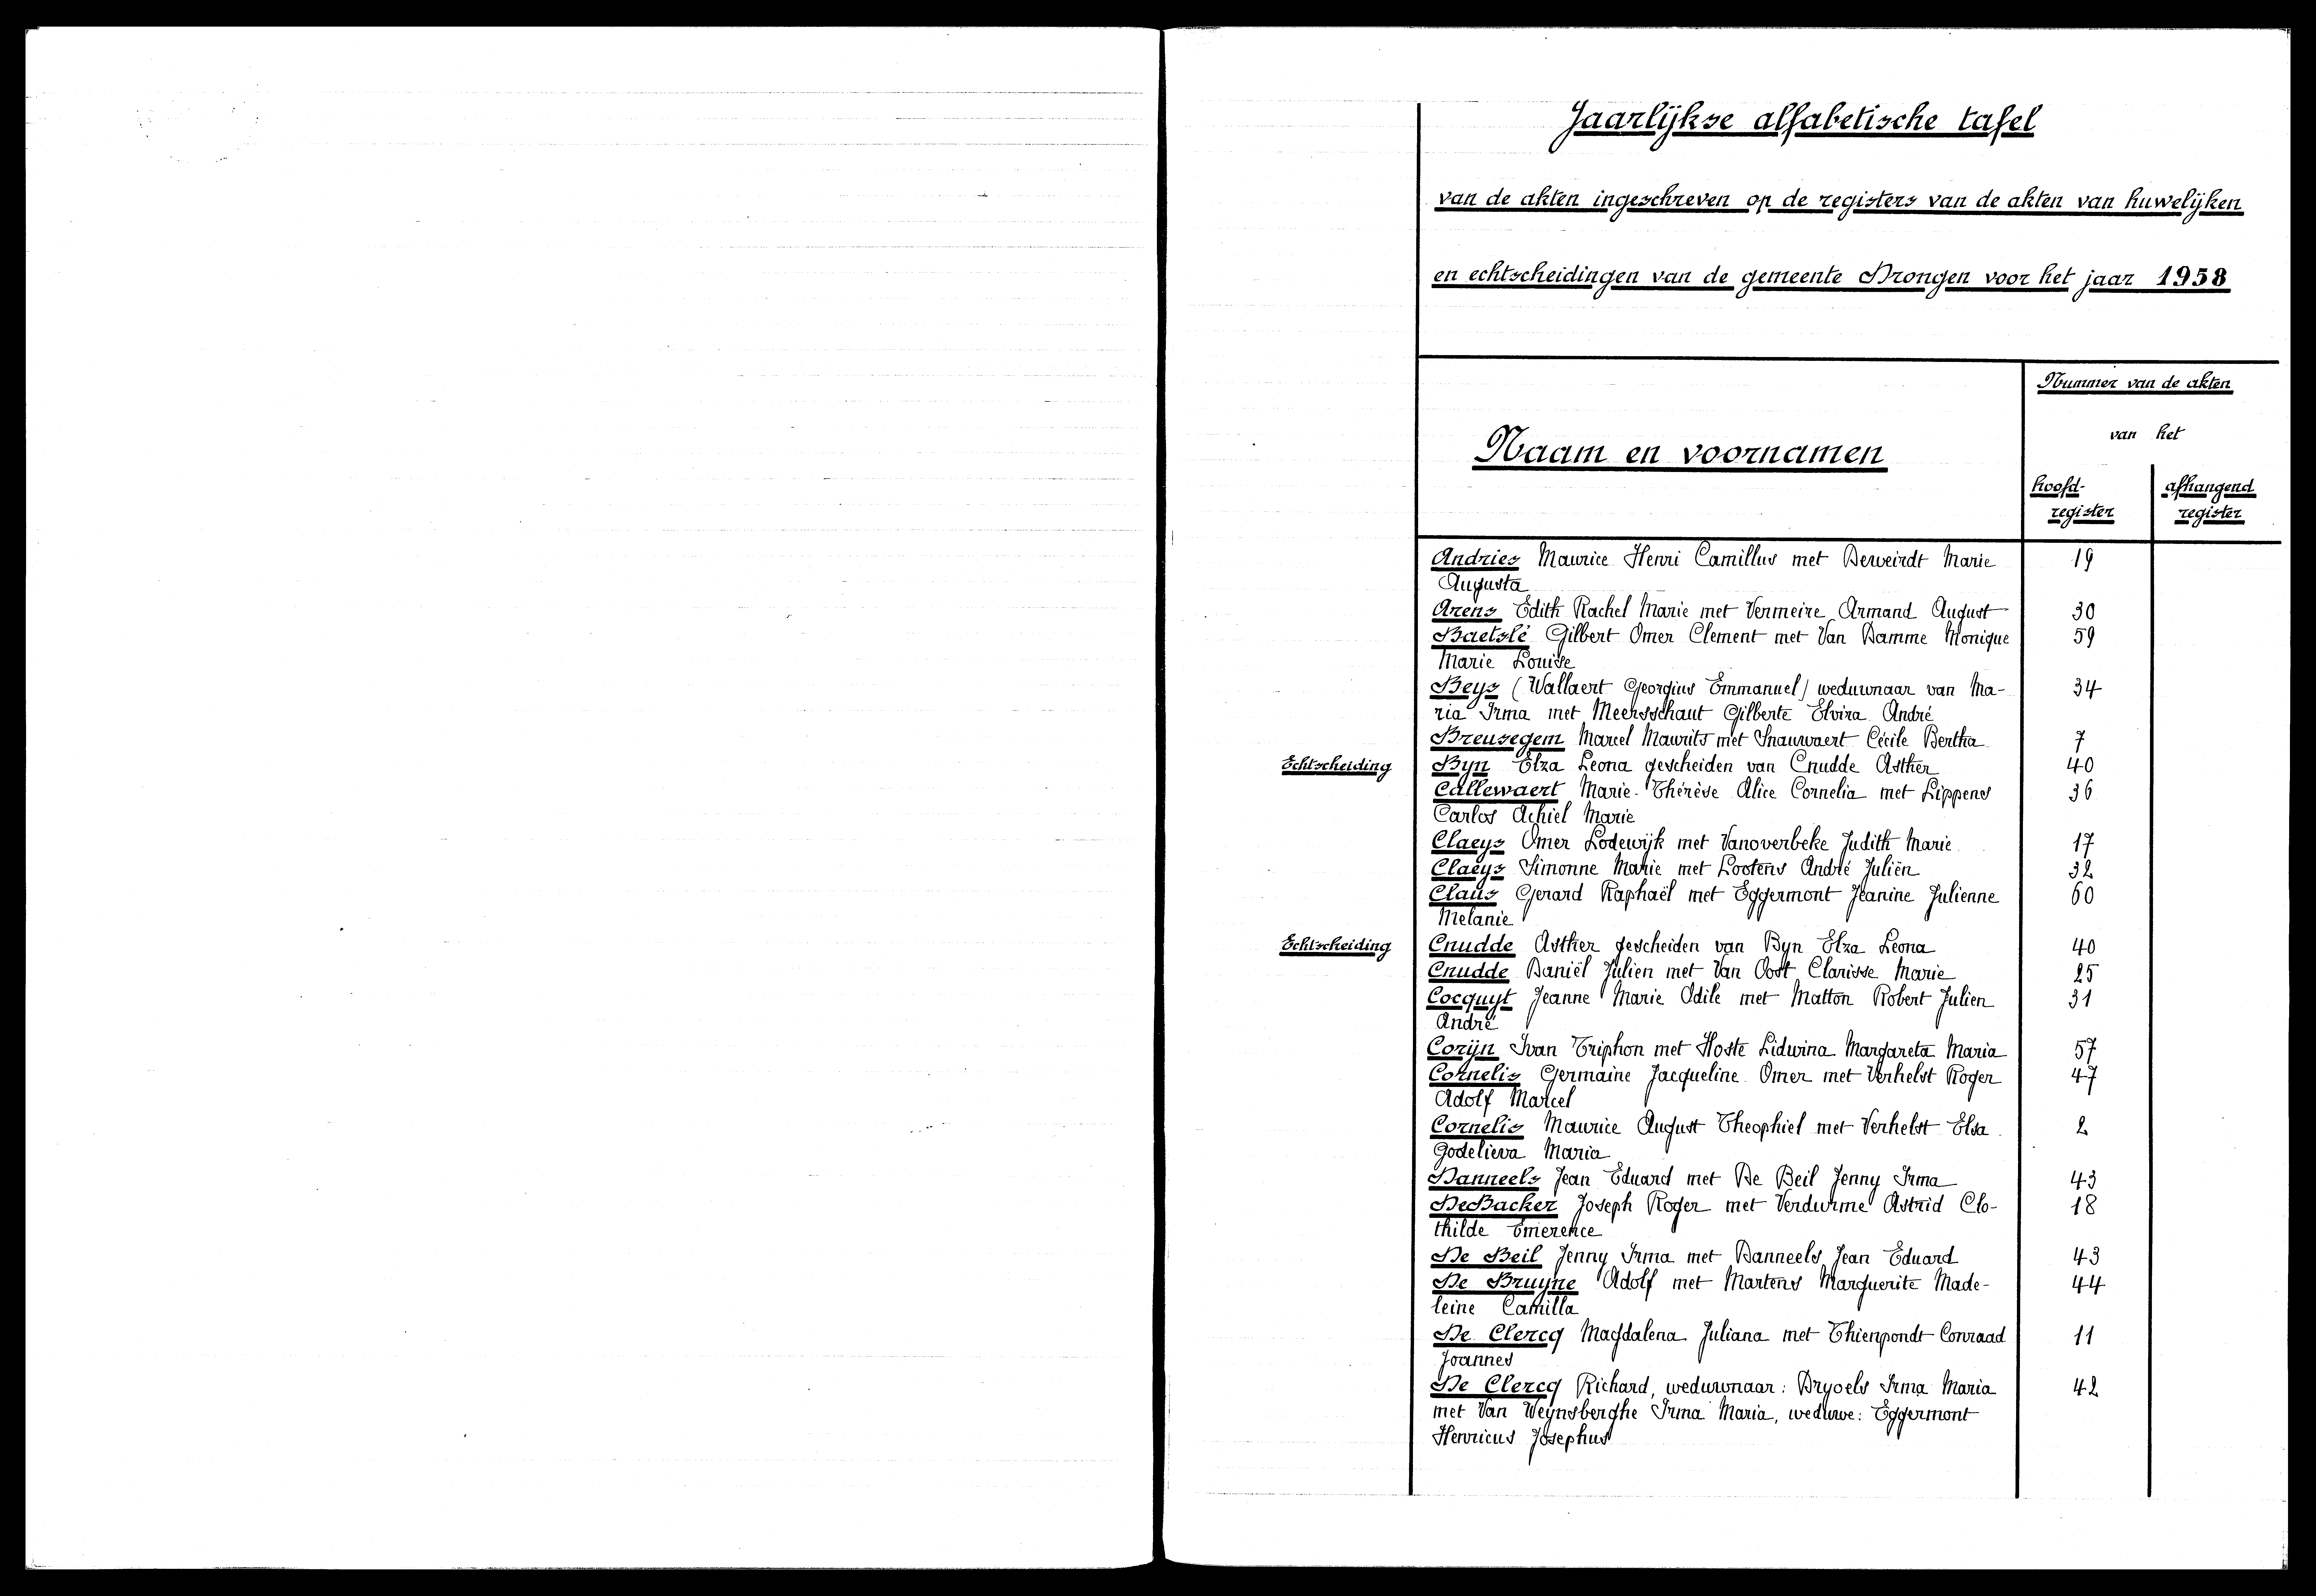 Jaarlijkse alfabetische tafel
van de akten ingeschreven op de registers van de akten van huwelijken
en echtscheidingen van de gemeente Drongen voor het jaar 1958
Nummer van de akten
van het
Naam en voornamen
hoofd- afhangend
register register
Andries Maurice Henri Camillus met Derweirdt Marie 19
Augusta
Arens Edith Rachel Marie met Vermeire Armand August 30
Baetslé Gilbert Omer Clement met Van Damme Monique 59
Marie Louise
Beys (Wallaert Georgius Emmanuel) weduwnaar van Ma- 34
ria Irma met Meersschaut Gilberte Elvira André
Breusegem Marcel Maurits met Snauwaert Cécile Bertha 7
Echtscheiding Byn Elza Leona gescheiden van Cnudde Asther 40
Callewaert Marie-Thérèse Alice Cornelia met Lippens 36
Carlos Achiel Marie
Claeys Omer Lodewijk met Vanoverbeke Judith Marie 17
Claeys Simonne Marie met Lootens André Juliën 32
Claus Gerard Raphaël met Eggermont Jeanine Julienne 60
Melanie
Echtscheiding Cnudde Asther gescheiden van Byn Elza Leona 40
Cnudde Daniël Julien met Van Oost Clarisse Marie 25
Cocquyt Jeanne Marie Odile met Matton Robert Julien 31
André
Corijn Ivan Triphon met Hoste Lidwina Margareta Maria 57
Cornelis Germaine Jacqueline Omer met Verhelst Roger 47
Adolf Marcel
Cornelis Maurice August Theophiel met Verhelst Elsa 2
Godelieva Maria
Danneels Jean Eduard met De Beil Jenny Irma 43
DeBacker Joseph Roger met Verdurme Astrid Clo- 18
thilde Emerence
De Beil Jenny Irma met Danneels Jean Eduard 43
De Bruyne Adolf met Martens Marguerite Made- 44
leine Camilla
De Clercq Magdalena Juliana met Thienpondt Conraad 11
Joannes
De Clercq Richard, weduwnaar: Dryoels Irma Maria 42
met Van Weynsberghe Irma Maria, weduwe: Eggermont
Henricus Josephus